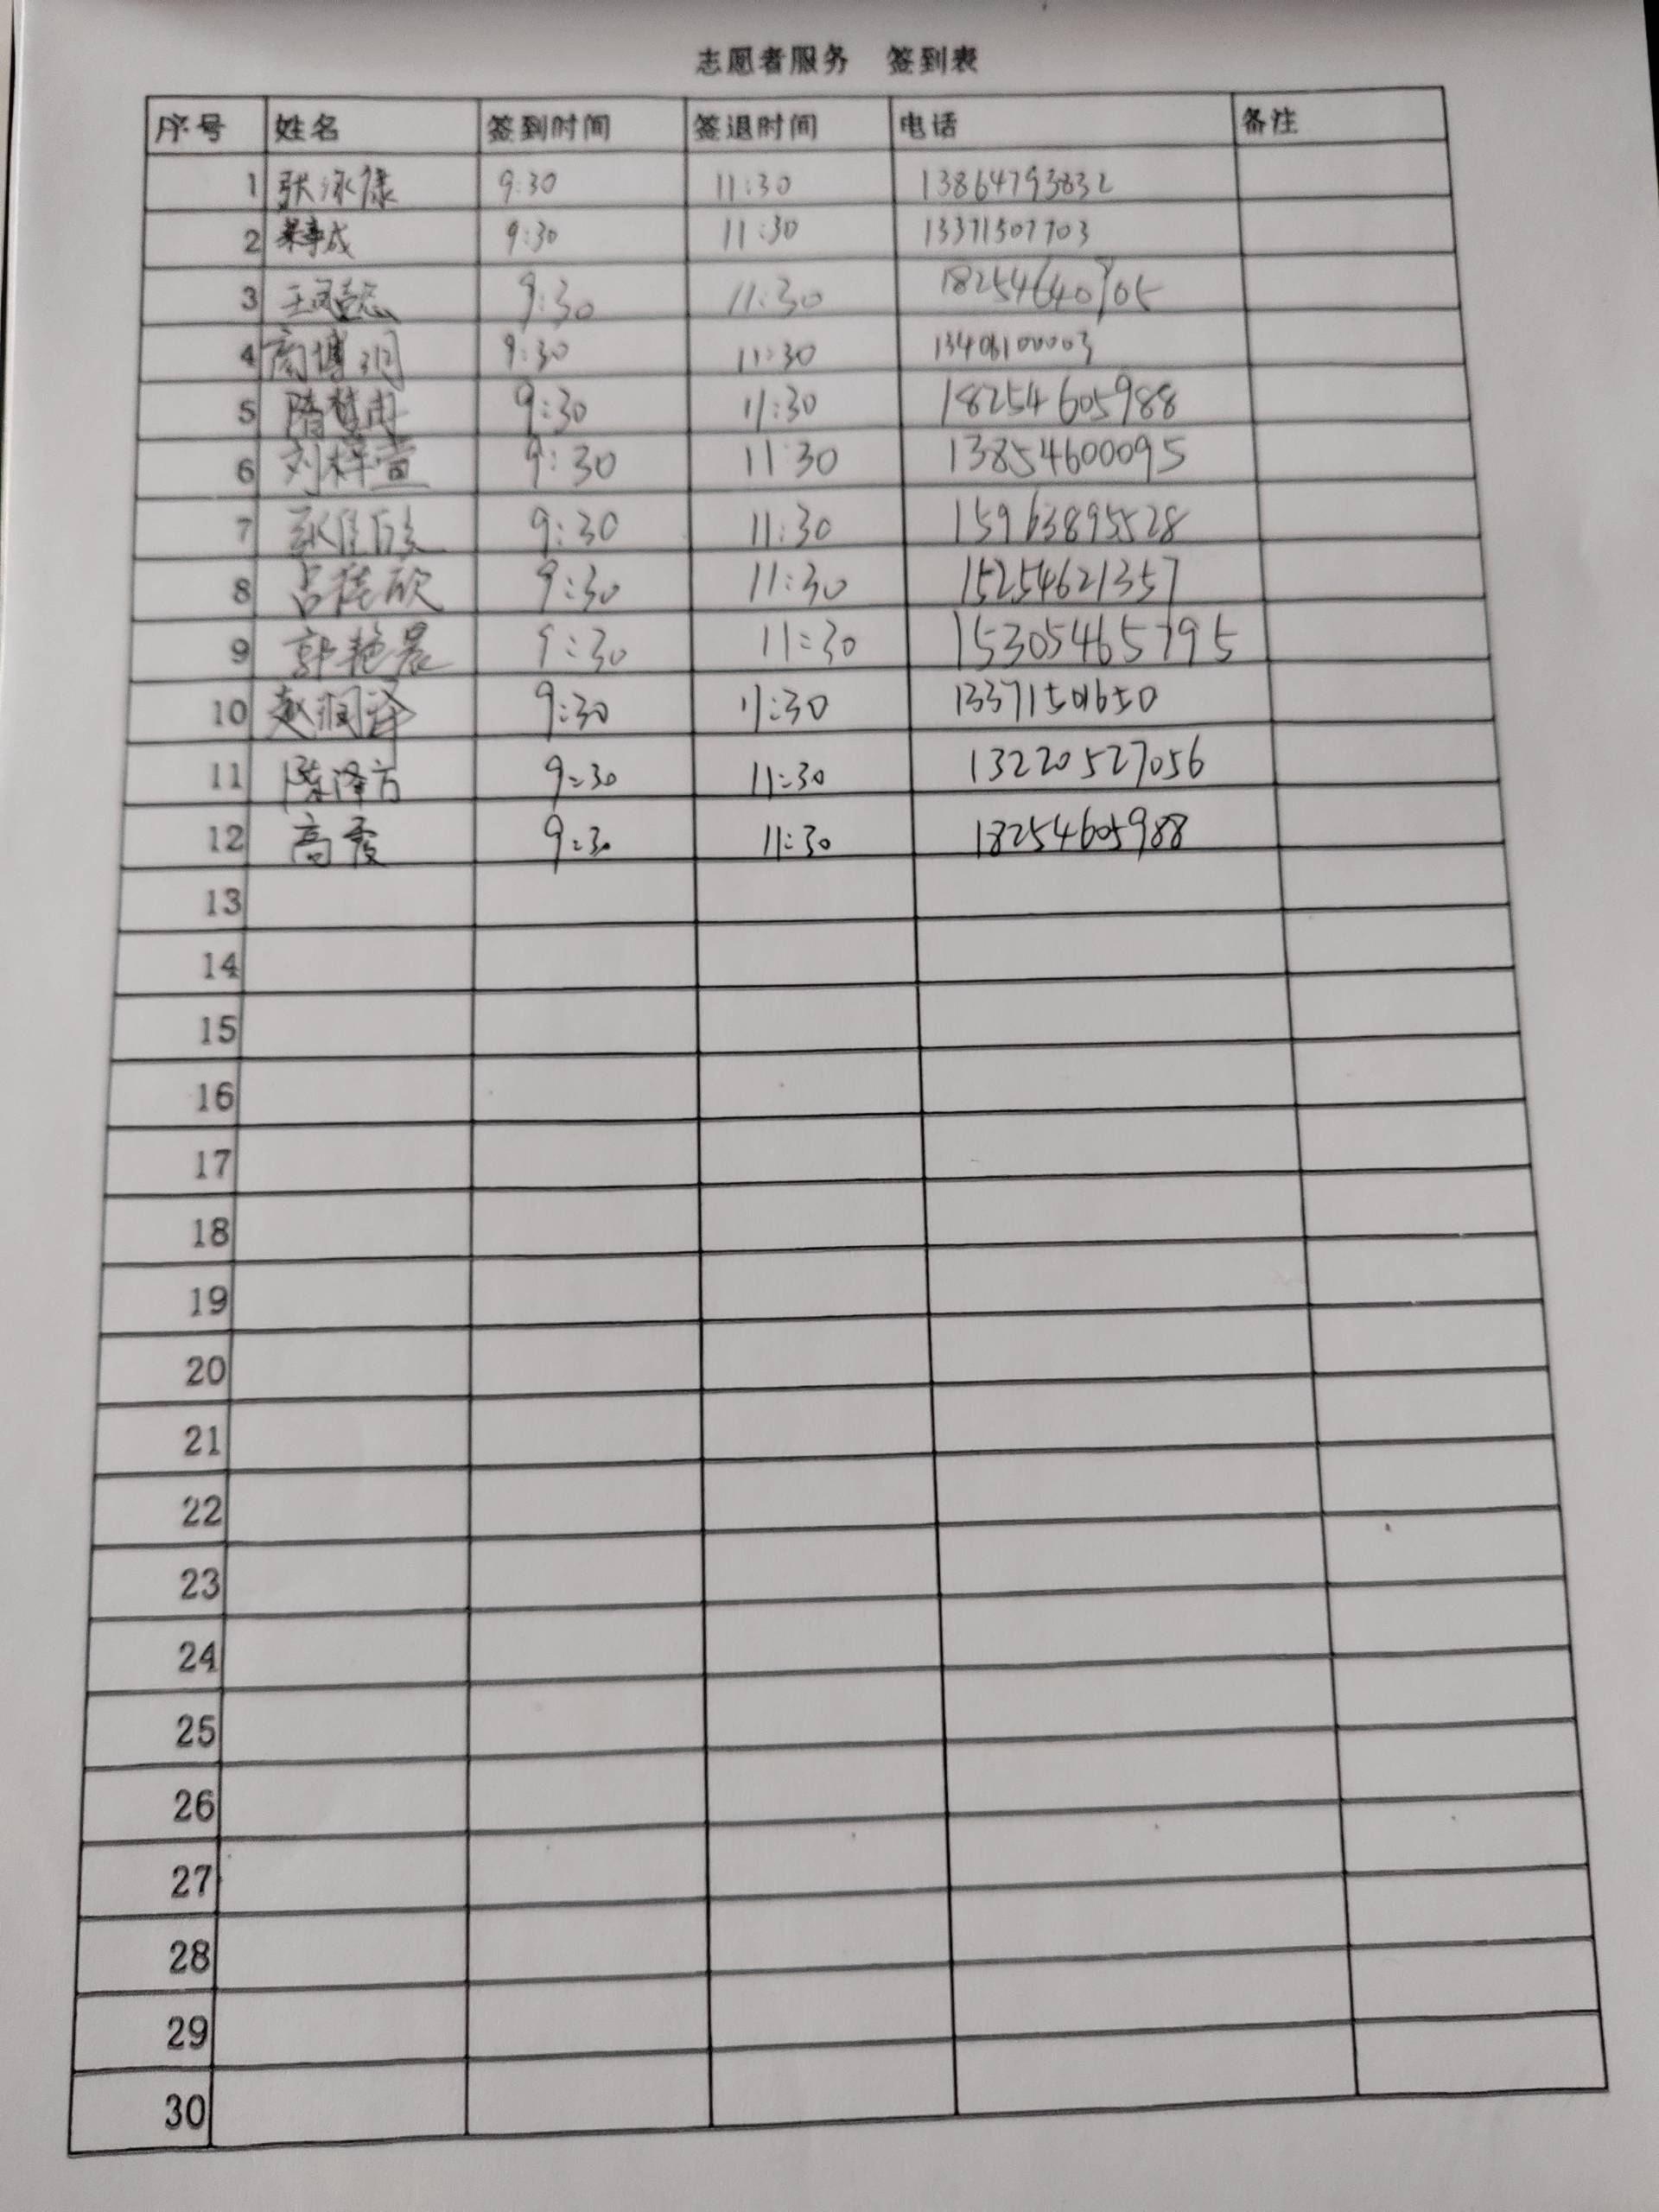 志愿者服务 签到表
序号 姓名 签到时间 签退时间 电话 备注
1 张泳 9:30 11:30 13864793832
2 9:30 11:30 13371507703
3 王 9:30 11:30 18254640705
4 商博 9:30 11:30 13406100003
5 隋楚 9:30 11:30 18254605988
6 刘梓萱 9:30 11:30 13854600095
7 9:30 11:30 15963895528
8 吕佳欣 9:30 11:30 15254621357
9 郭艳晨 9:30 11:30 15305465795
10 赵润泽 9:30 11:30 13371501650
11 陈泽方 9:30 11:30 13220527056
12 高霞 9:30 11:30 18254605988
13
14
15
16
17
18
19
20
21
22
23
24
25
26
27
28
29
30